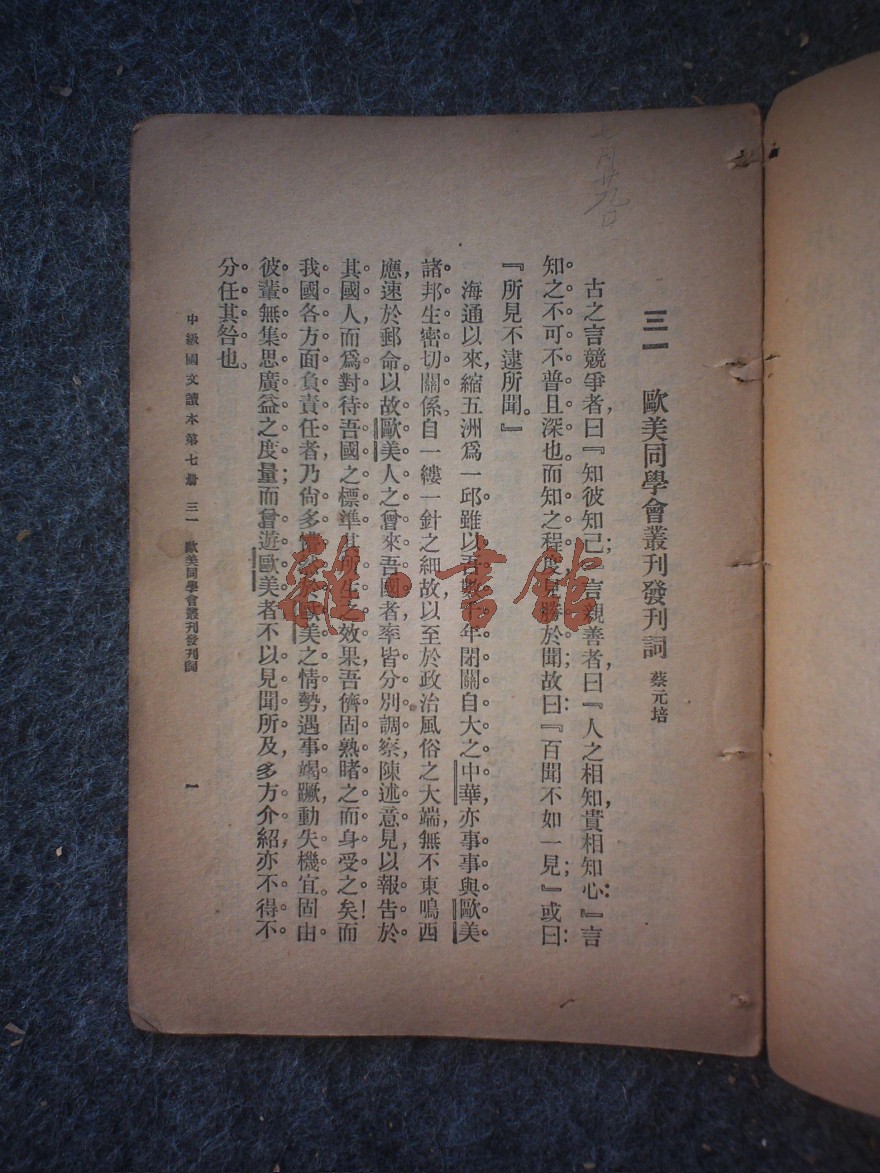 七月廿九日
三一　歐美同學會叢刊發刊詞　蔡元培
古之言競爭者,曰『知彼知己;』言親善者,曰『人之相知,貴相知心:』言
知之不可不普且深也。而知之程度,見勝於聞;故曰:『百聞不如一見;』或曰:
『所見不逮所聞。』
海通以來,縮五洲爲一邱。雖以吾數千年閉關自大之中華,亦事事與歐美
諸邦生密切關係。自一縷一針之細故,以至於政治風俗之大端,無不東鳴西
應,速於郵命。以故歐美人之曾來吾國者,率皆分別調察,陳述意見,以報告於
其國人,而爲對待吾國之標準。其所生之效果,吾儕固熟睹之而身受之矣!而
我國各方面負責任者,乃尙多 歐美之情勢,遇事竭蹶,動失機宜。固由
彼輩無集思廣益之度量;而曾遊歐美者,不以見聞所及,多方介紹,亦不得不
分任其咎也。
中級國文讀本第七册　三一　歐美同學會叢刊發刊詞　一
雜·書館